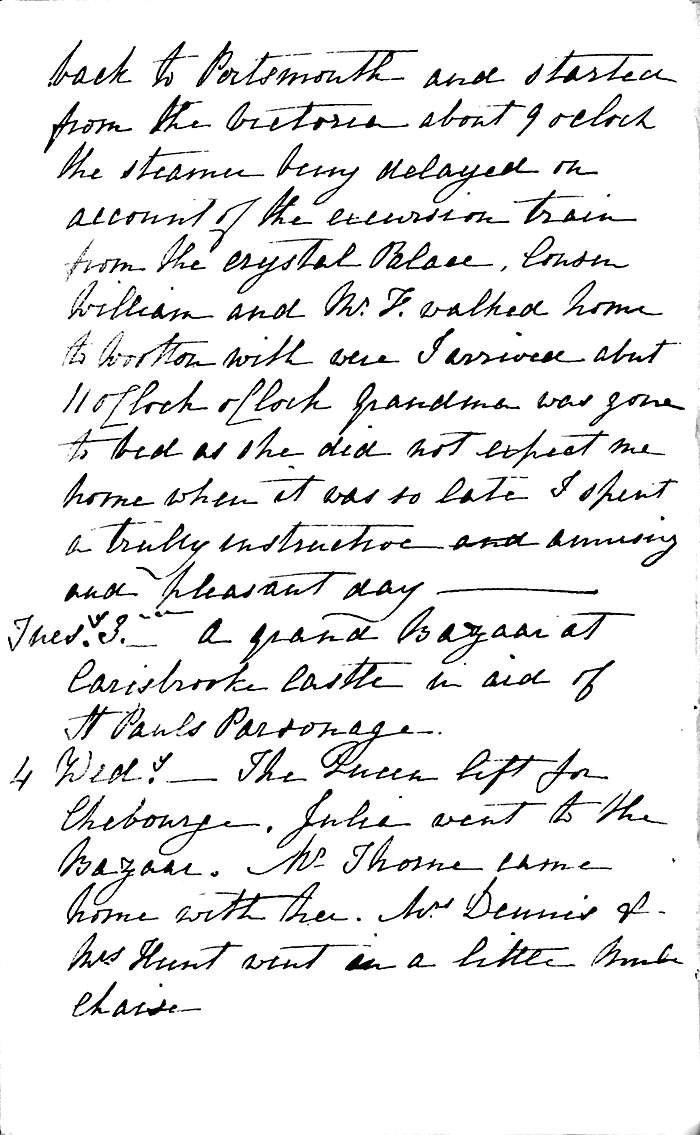 back to Portsmouth and started
from the Victoria about 9 oclock
the steamer being delayed on
account of the excursion train
from the crystal Palace, Cousin
William and Mr. F. walked home
to Wootton with were I arrived abut
11 oClock oClock Grandma was gone
to bed as she did not expect me
home when it was so late I spent
a trully instructive and amusing
and pleasant day
Tues.y 3. A grand Bazaar at
Carisbrooke Castle in aid of
St Pauls Parsonage.
4 Wed.y — The Queen left for
Chebourge. Julia went to the
Bazaar. Mr Thorne came
home with her. Mrs Dennis &
Mrs Hunt went in a little
Chaise